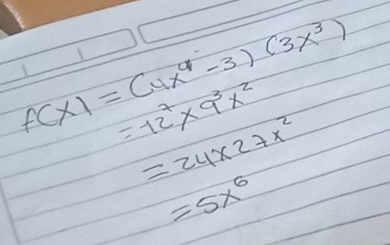 f(x) = (4x⁴ - 3) (3x³)
= 12⁷ x 9³x²
= 24x27x²
= 5x⁶